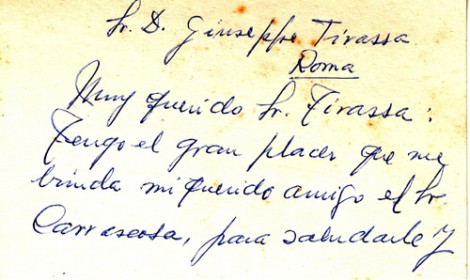 Sr. D. Giuseppe Tirassa
Roma
Muy querido Sr. Tirassa:
Tengo el gran placer que me
brinda mi querido amigo el Sr.
Carrascosa, para saludarle y